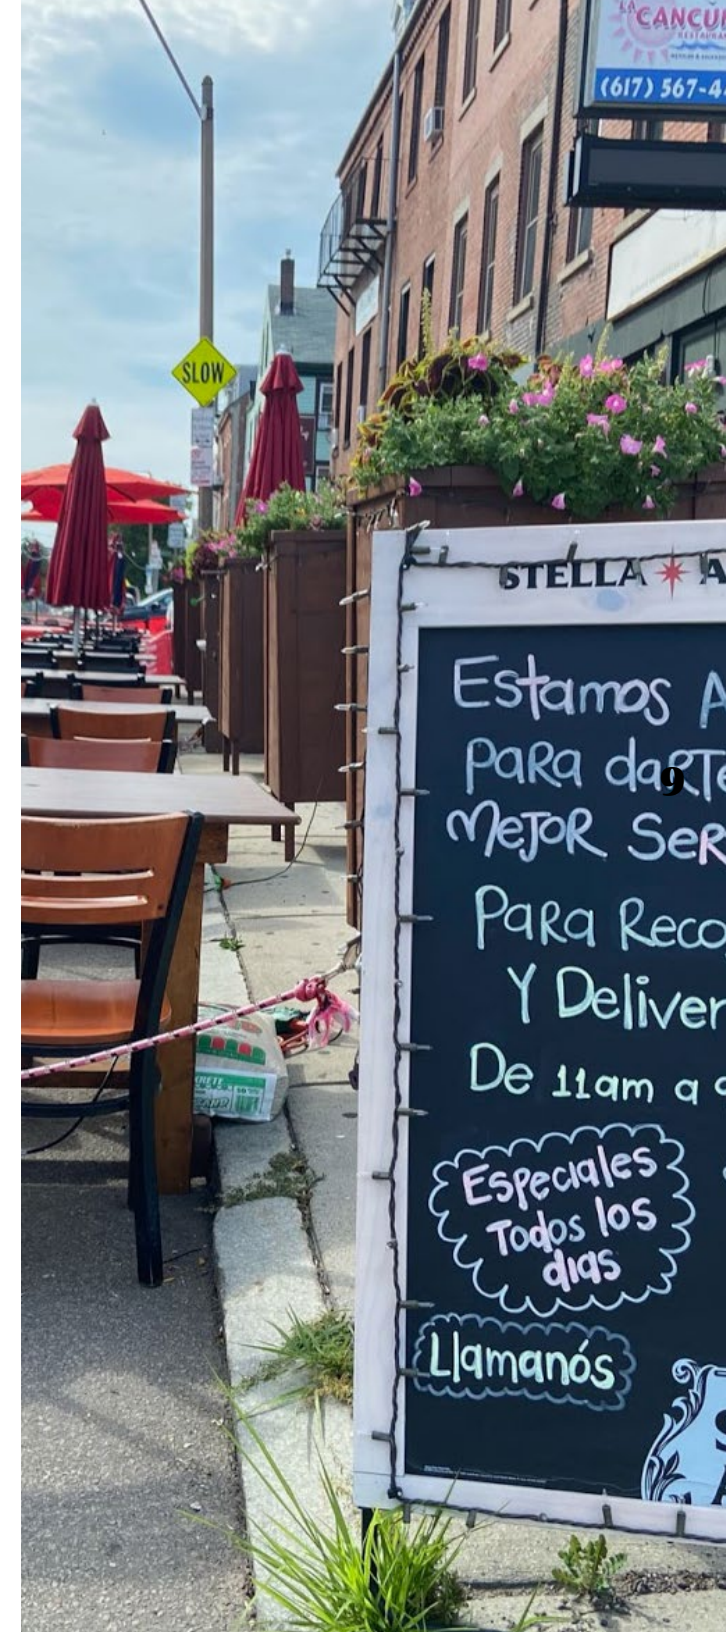 LA
CANCUN
RESTAURAN
(617) 567-4
SLOW
STELLA A
Estamos A
Para darte
Mejor Ser
9
Para Reco
Y Deliver
De 11am a
Especiales
Todos los
dias
Llamanós